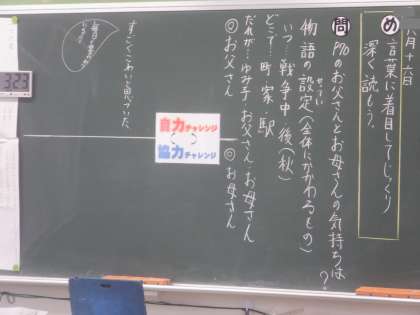 六月十六日
め 言葉に着目してじっくり
深く読もう。
問 P70のお父さんとお母さんの気持ちは?
せってい
物語の設定(全体にかかわるもの)
いつ…戦争中 後(秋)
どこで…町 家 駅
だれが…ゆみ子 お父さん お母さん
◎お父さん ◎お母さん
自力チャレンジ
協力チャレンジ
すごくこわいと思っていた。
323